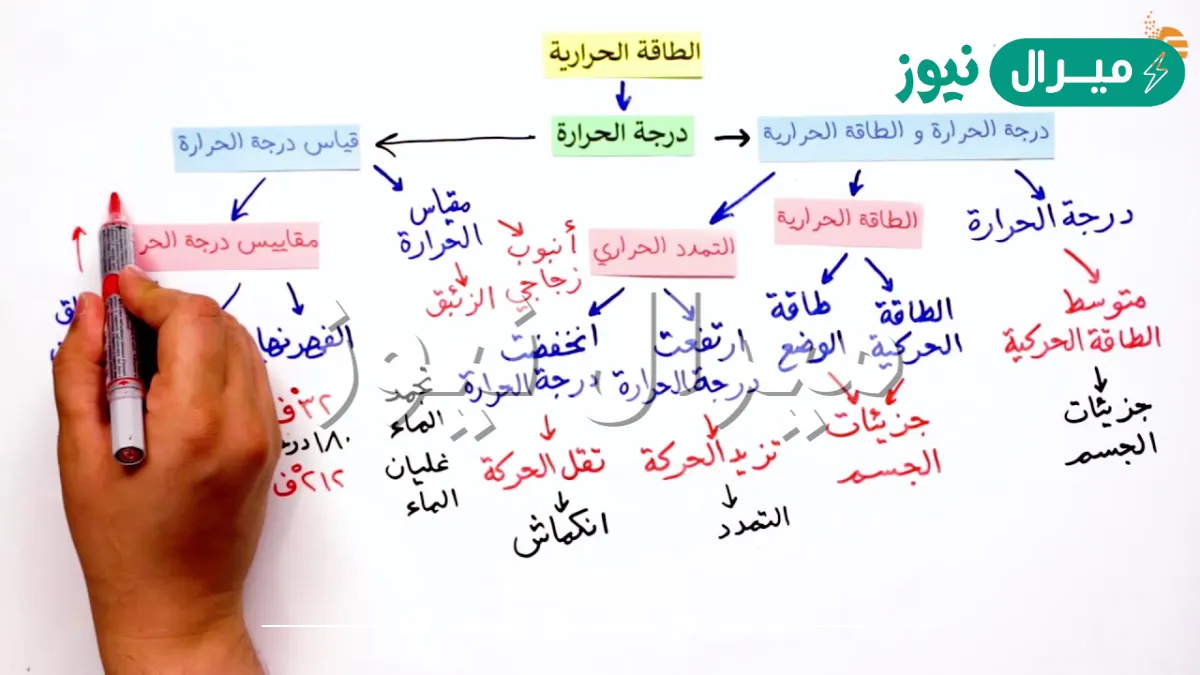 ميرال نيوز
الطاقة الحرارية
درجة الحرارة
درجة الحرارة و الطاقة الحرارية
قياس درجة الحرارة
درجة الحرارة
متوسط
الطاقة الحركية
جزيئات
الجسم
الطاقة الحرارية
الطاقة
الحركية
طاقة
الوضع
جزيئات
الجسم
التمدد الحراري
ارتفعت
درجة الحرارة
تزيد الحركة
التمدد
انخفضت
درجة الحرارة
تقل الحركة
انكماش
مقياس
الحرارة
أنبوب
زجاجي
الزئبق
مقاييس درجة
الفهرنهايتي
تجمد
الماء
٣٢°ف
١٨٠
غليان
الماء
٢١٢°ف
ميرال نيوز